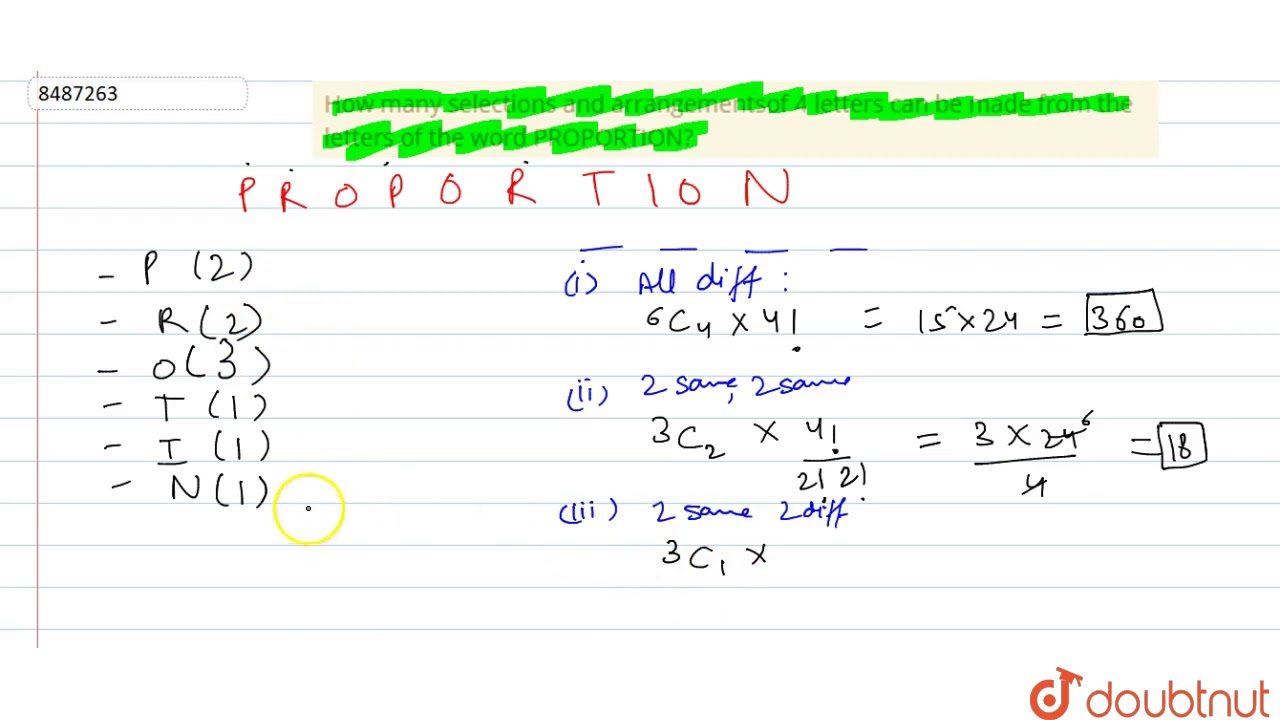 8487263
How many selections and arrangementsof 4 letters can be made from the
letters of the word PROPORTION?
P R O P O R T I O N
- P (2)
- R (2)
- O (3)
- T (1)
- I (1)
- N (1)
(i) All diff :
6C4 × 4! = 15 × 24 = 360
(ii) 2 same, 2 same
3C2 × 4!/2! 2! = 3 × 24 6/4 = 18
(iii) 2 same 2 diff
3C1 ×
doubtnut